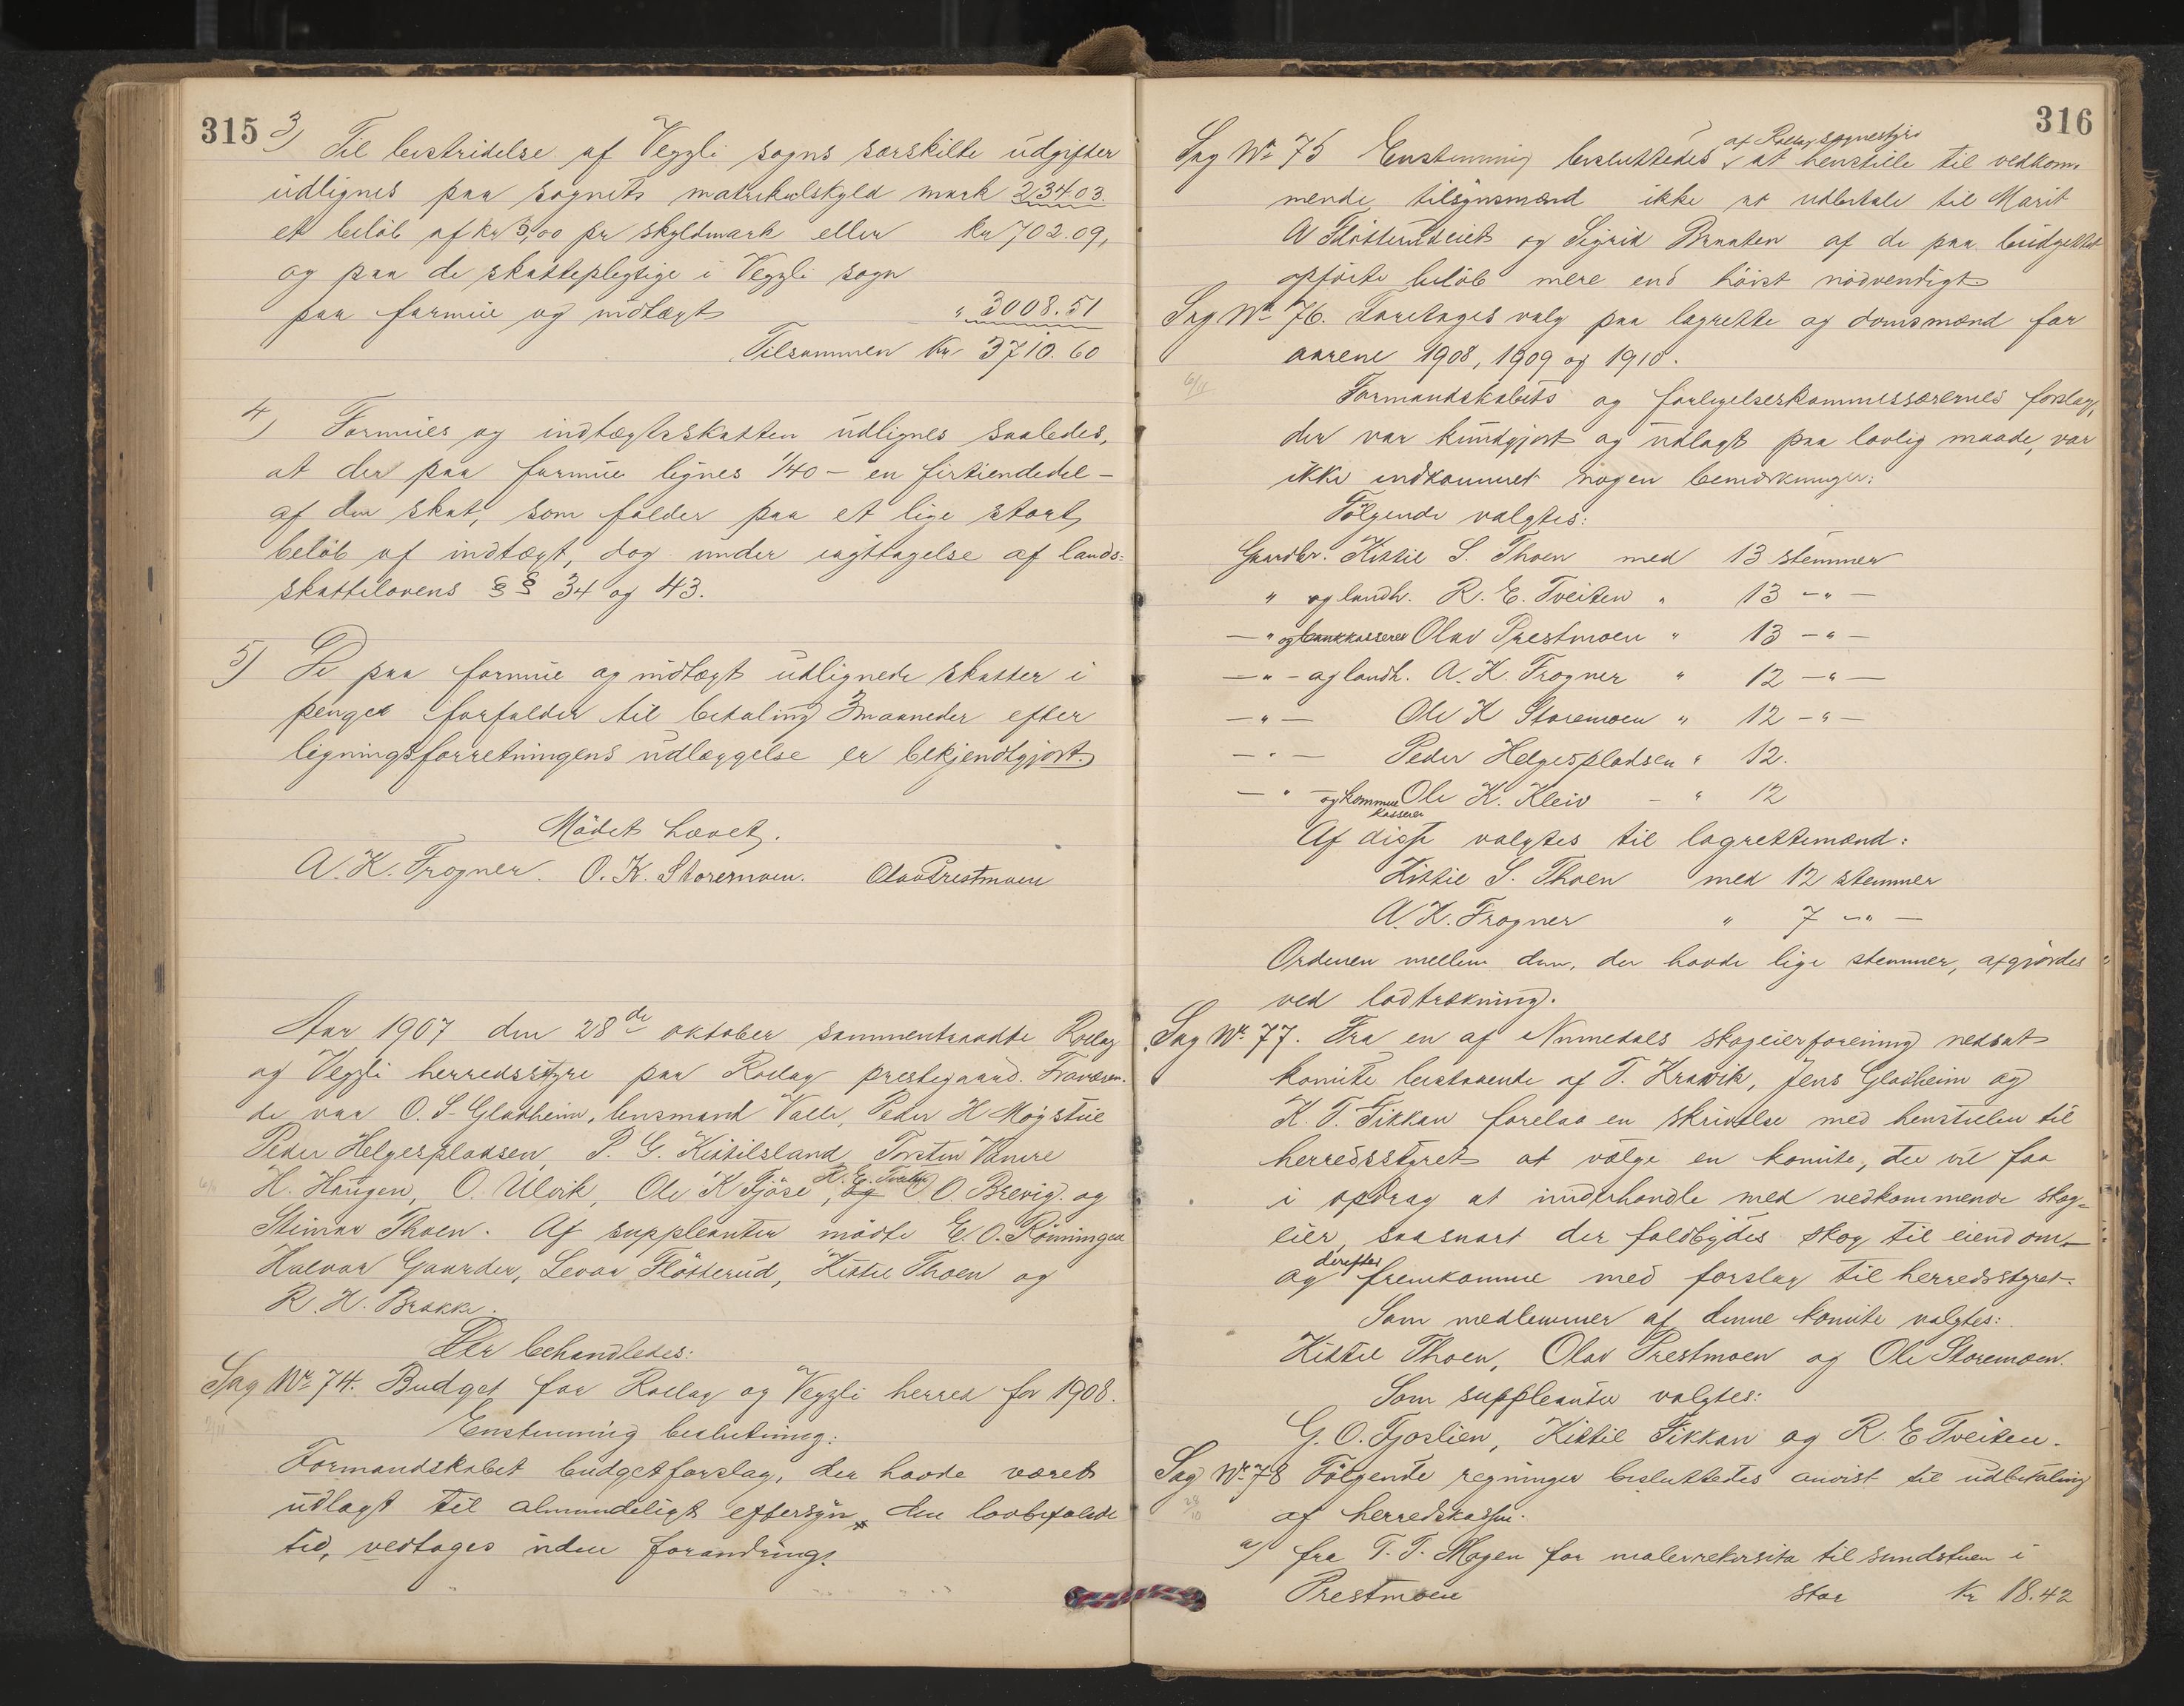 315
3)
Til bestridelse af Vegzli sogns særskilte udgifter
udlignes paa sognets matrikulskyld mark 234.03.
et beløb af kr 3,00 pr skyldmark eller kr 702.09,
og paa de skattepligtige i Vegzli sogn
paa formue og indtægt " 3008.51
Tilsammen kr 3710.60
4) Formues og indtægtsskatten udlignes saaledes,
at der paa formue lignes 1/40 - en firtiendedel -
af den skat, som falder paa et lige stort
beløb af indtægt, dog under iagttagelse af lands-
skattelovens § § 34 og 43.
5) De paa formue og indtægt udlignede skatter i
penger forfalder til betaling 3 maaneder efter
ligningsforretningens udlæggelse er bekjendtgjort.
Mødet hævet.
A. K. Frogner. O. K. Storemoen. Olav Prestmoen
Aar 1907 den 28de oktober sammentraadte Rollag
og Vegzli herredsstyre paa Rollag prestegaard. Fraværen-
de var O. S. Gladheim, lensmand Valle, Peder H Møgstue
Peder Helgespladsen, P. G. Kittilsland, Torsten Vamre
H. Haugen, O. Ulvik, Ole K Fjøse, R. E. Tveiten, og O. O. Brevig. og
Steinar Thoen. Af suppleanter mødte E. O. Røiningen
Halvor Gaarder, Levor Fløtterud, Kittil Thoen og
R. H. Brakke.
Der behandledes:
Sag Nr 74. Budget for Rollag og Vegzli herred for 1908.
Enstemmig beslutning:
Formandskabet budgetforslag, der havde været
udlagt til almindeligt eftersyn den lovbefalede
tid, vedtages uden forandring.
316
af Rollag sognestyre
Sag Nr 75 Enstemmig besluttedes at henstille til vedkom-
mende tilsynsmænd ikke at udbetale til Marit
A Fløtterudeiet og Sigrid Braaten af de paa budgettet
opførte beløb mere end høist nødvendigt
Sag Nr 76. Foretages valg paa lagrette og domsmænd for
aarene 1908, 1909 og 1910.
6/11
Formandskabets og forligelseskommissærernes forslag,
der var kundgjort og udlagt paa lovlig maade, var
ikke indkommet nogen bemærkninger:
Følgende valgtes:
Gaardbr. Kittil S. Thoen med 13 stemmer
" og landh. R. E. Tveiten " 13 - " -
- " og bankkasserer Olav Prestmoen " 13 - " -
- " - og landh. A. K. Frogner " 12 - " -
- " - Ole K Storemoen " 12 - " -
- " - Peder Helgespladsen " 12.
- " - og kommunekasserer Ole K. Kleiv - " 12
Af disse valgtes til lagrettemænd:
Kittil S. Thoen med 12 stemmer
A. K. Frogner " 7 - " -
Ordenen mellem dem, der havde lige stemmer, afgjordes
ved lodtrækning.
Sag Nr 77. Fra en af Numedals skogeierforening nedsat
komite bestaaende af T. Kravik, Jens Gladheim og
K. T. Fikkan forelaa en skrivelse med henstillen til
herredsstyret at vælge en komite, der vil faa
i opdrag at underhandle med vedkommende skog-
eier, saasnart der faldbydes skog til eiendom
og derefter fremkomme med forslag til herredsstyret.
Som medlemmer af denne komite valgtes:
Kittil Thoen, Olav Prestmoen og Ole Storemoen.
Som suppleanter valgtes:
G. O. Fjoslien, Kittil Fikkan og R. E Tveiten.
Sag Nr 78 Følgende regninger besluttedes anvist til udbetaling
28/10
af herredskassen.
a) fra T. T. Mogen for malerrekvisita til sundstuen i
Prestmoen stor kr 18.42